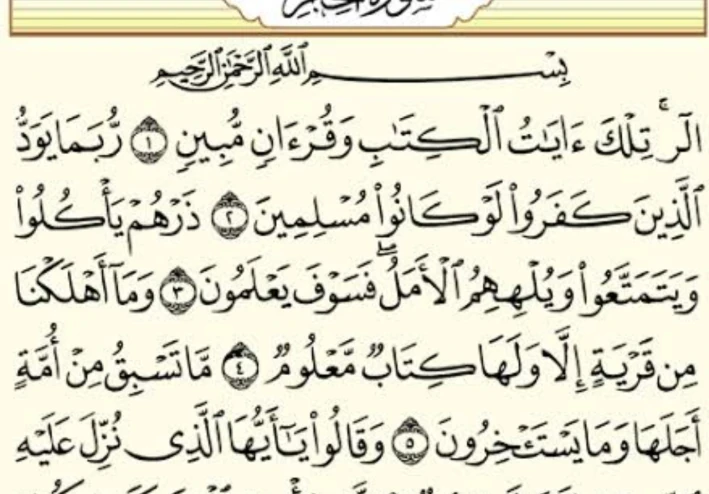 سورة الحجر
بِسْمِ اللَّهِ الرَّحْمَٰنِ الرَّحِيمِ
الٓرۚ تِلْكَ ءَايَٰتُ ٱلْكِتَٰبِ وَقُرْءَانٍ مُّبِينٍ ١ رُّبَمَا يَوَدُّ
ٱلَّذِينَ كَفَرُوا۟ لَوْ كَانُوا۟ مُسْلِمِينَ ٢ ذَرْهُمْ يَأْكُلُوا۟
وَيَتَمَتَّعُوا۟ وَيُلْهِهِمُ ٱلْأَمَلُۖ فَسَوْفَ يَعْلَمُونَ ٣ وَمَآ أَهْلَكْنَا
مِن قَرْيَةٍ إِلَّا وَلَهَا كِتَابٌ مَّعْلُومٌ ٤ مَّا تَسْبِقُ مِنْ أُمَّةٍ
أَجَلَهَا وَمَا يَسْتَـْٔخِرُونَ ٥ وَقَالُوا۟ يَٰٓأَيُّهَا ٱلَّذِى نُزِّلَ عَلَيْهِ